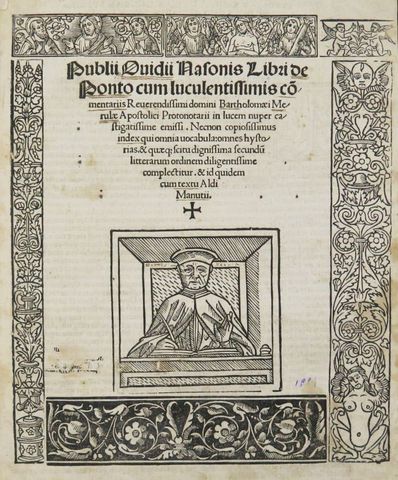 Publii Ouidii Nasonis Libri de
Ponto cum luculentissimis cō
mentariis Reuerendissimi domini Bartholomæi Me
rulæ Apostolici Protonotarii in lucem nuper ca
stigatissime emissi. Necnon copiosissimus
index qui omnia uocabula: omnes hysto
rias. & quæq; scitu dignissima secundū
litterarum ordinem diligentissime
complectitur. & id quidem
cum textu Aldi
Manutii.